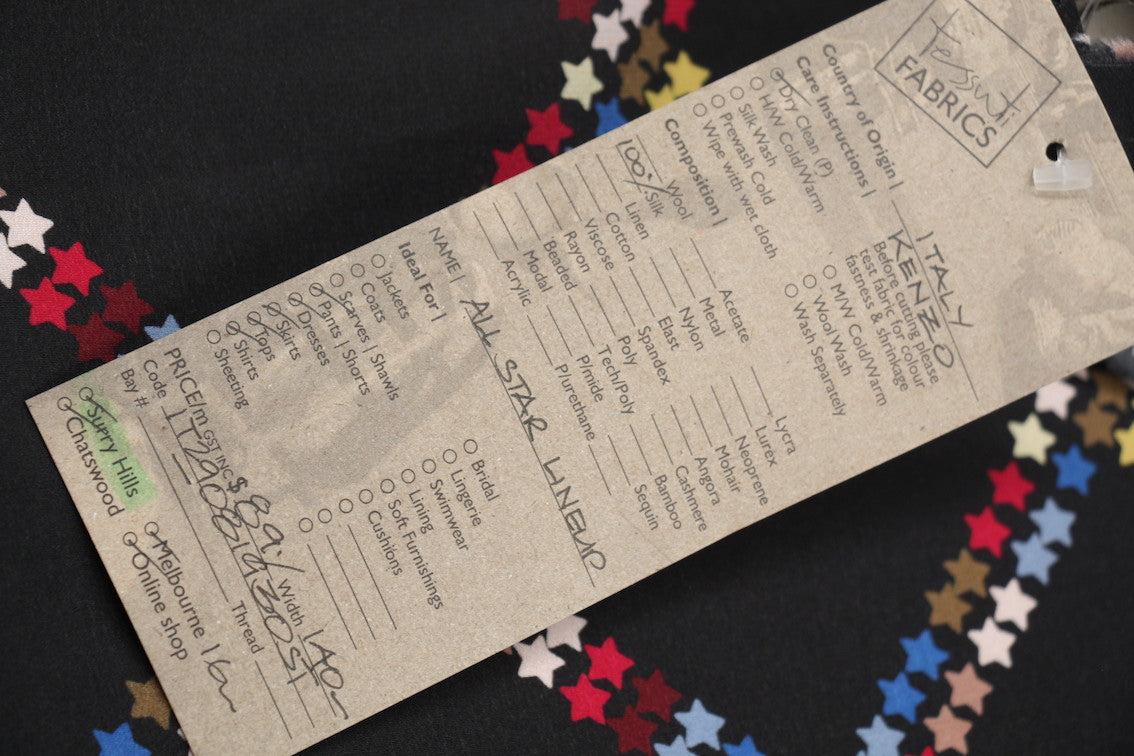 Tessuti
FABRICS
Country of Origin | ITALY
KENZO
Care Instructions |
Before cutting please
test fabric for colour
fastness & shrinkage
Dry Clean (P)
H/W Cold/Warm
Silk Wash
Prewash Cold
Wipe with wet cloth
M/W Cold/Warm
Wool Wash
Wash Separately
Composition |
Wool
100% Silk
Linen
Cotton
Viscose
Rayon
Beaded
Modal
Acrylic
Acetate
Metal
Nylon
Elast
Spandex
Poly
Tech/Poly
P/mide
P/urethane
Lycra
Lurex
Neoprene
Mohair
Angora
Cashmere
Bamboo
Sequin
NAME | ALL STAR LINEUP
Ideal For |
Jackets
Coats
Scarves | Shawls
Pants | Shorts
Dresses
Skirts
Tops
Shirts
Sheeting
Bridal
Lingerie
Swimwear
Lining
Soft Furnishings
Cushions
PRICE/m GST INC $ 89./ Width 140
Code
Bay # Thread
Surry Hills
Chatswood
Melbourne
Online shop